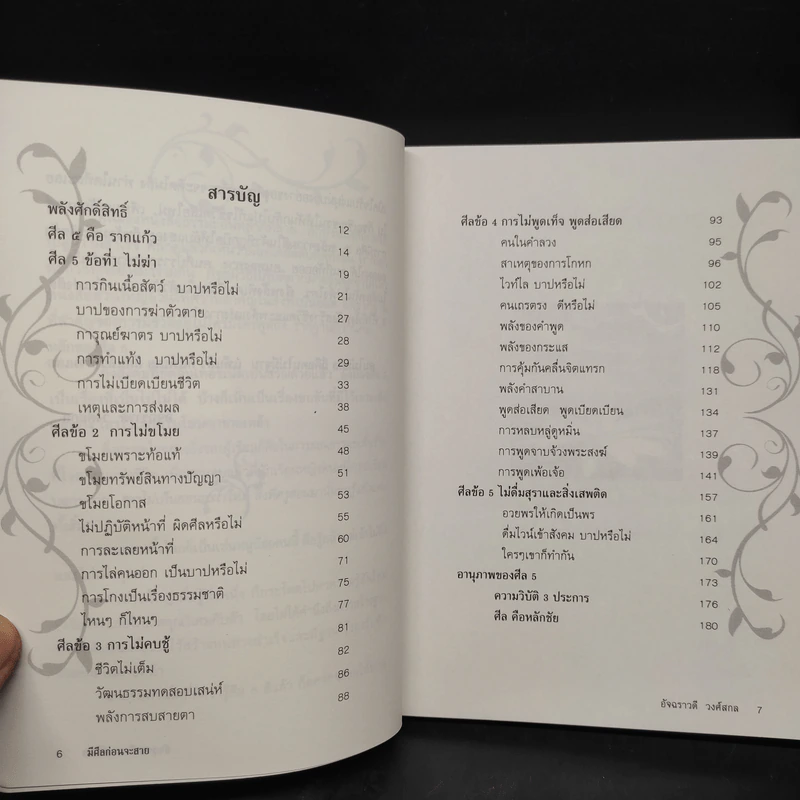 สารบัญ
พลังศักดิ์สิทธิ์ 12
ศีล ๕ คือ รากแก้ว 14
ศีล 5 ข้อที่1 ไม่ฆ่า 19
การกินเนื้อสัตว์ บาปหรือไม่ 21
บาปของการฆ่าตัวตาย 27
การุณย์ฆาตร บาปหรือไม่ 28
การทำแท้ง บาปหรือไม่ 29
การไม่เบียดเบียนชีวิต 33
เหตุและการส่งผล 38
ศีลข้อ 2 การไม่ขโมย 45
ขโมยเพราะท้อแท้ 48
ขโมยทรัพย์สินทางปัญญา 51
ขโมยโอกาส 53
ไม่ปฏิบัติหน้าที่ ผิดศีลหรือไม่ 55
การละเลยหน้าที่ 60
การไล่คนออก เป็นบาปหรือไม่ 71
การโกงเป็นเรื่องธรรมชาติ 75
ไหนๆ ก็ไหนๆ 77
ศีลข้อ 3 การไม่คบชู้ 81
ชีวิตไม่เต็ม 82
วัฒนธรรมทดสอบเสน่ห์ 86
พลังการสบสายตา 88
6 มีศีลก่อนจะสาย
ศีลข้อ 4 การไม่พูดเท็จ พูดส่อเสียด 93
คนในคำลวง 95
สาเหตุของการโกหก 96
ไวท์ไล บาปหรือไม่ 102
คนเถรตรง ดีหรือไม่ 105
พลังของคำพูด 110
พลังของกระแส 112
การคุ้มกันคลื่นจิตแทรก 118
พลังคำสาบาน 131
พูดส่อเสียด พูดเบียดเบียน 134
การหลบหลู่ดูหมิ่น 137
การพูดจาบจ้วงพระสงฆ์ 139
การพูดเพ้อเจ้อ 141
ศีลข้อ 5 ไม่ดื่มสุราและสิ่งเสพติด 157
อวยพรให้เกิดเป็นพร 161
ดื่มไวน์เข้าสังคม บาปหรือไม่ 164
ใครๆเขาก็ทำกัน 170
อานุภาพของศีล 5 173
ความวิบัติ 3 ประการ 176
ศีล คือหลักชัย 180
อัจฉราวดี วงศ์สกล 7